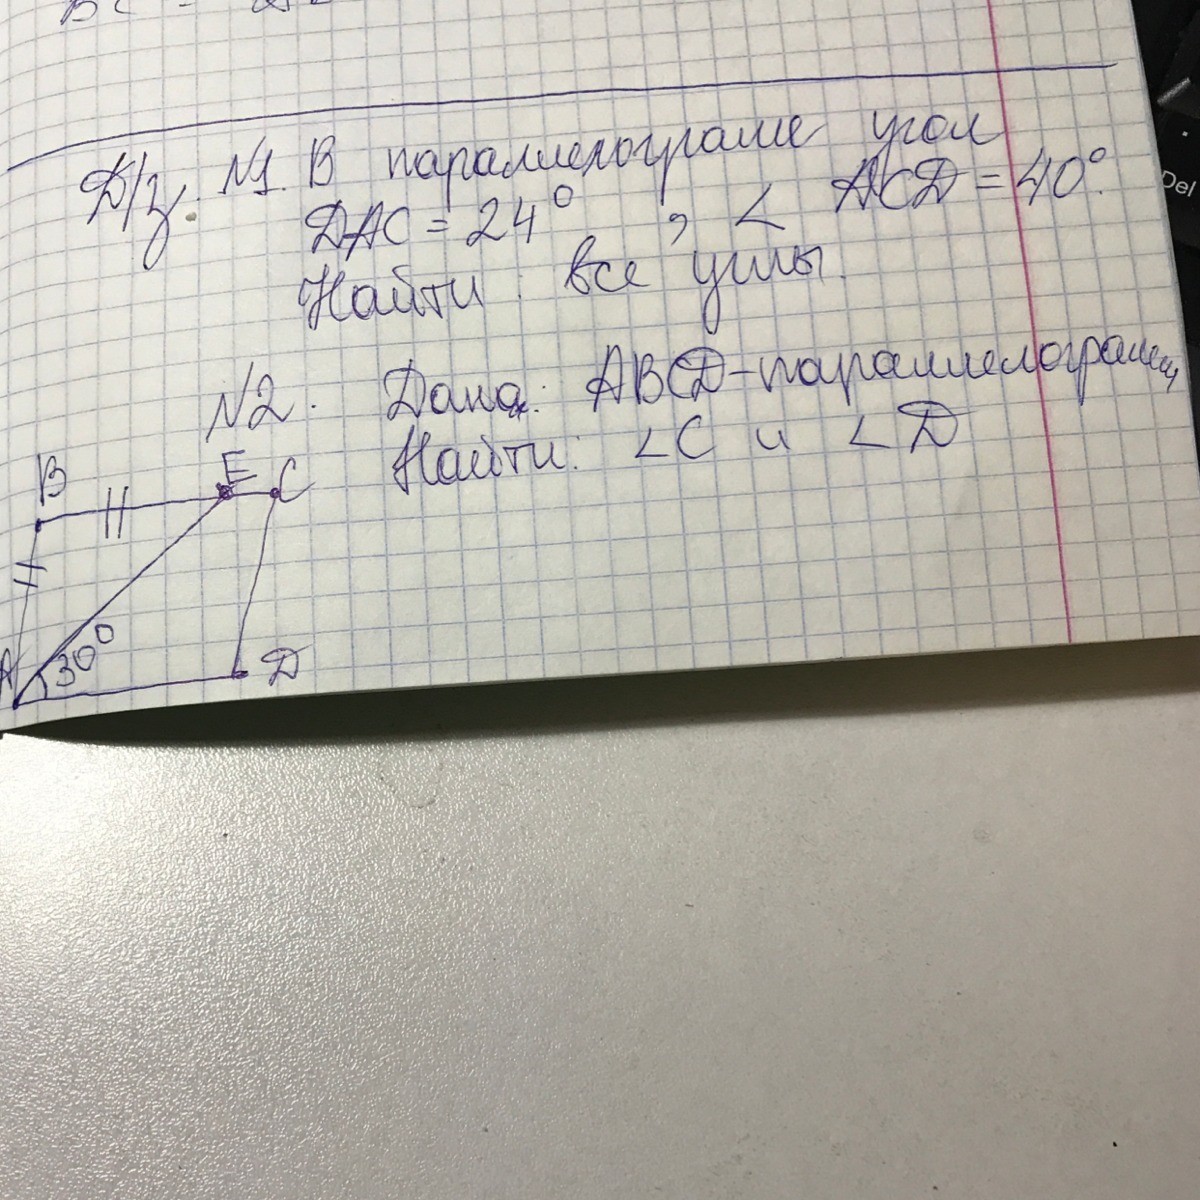 Д/з. N1. В параллелограме угол
DAC = 24° , < ACD = 40°.
Найти: все углы.
N2. Дано: ABCD-параллелограмм
Найти: <C и <D
B
E C
A
30°
D
Del